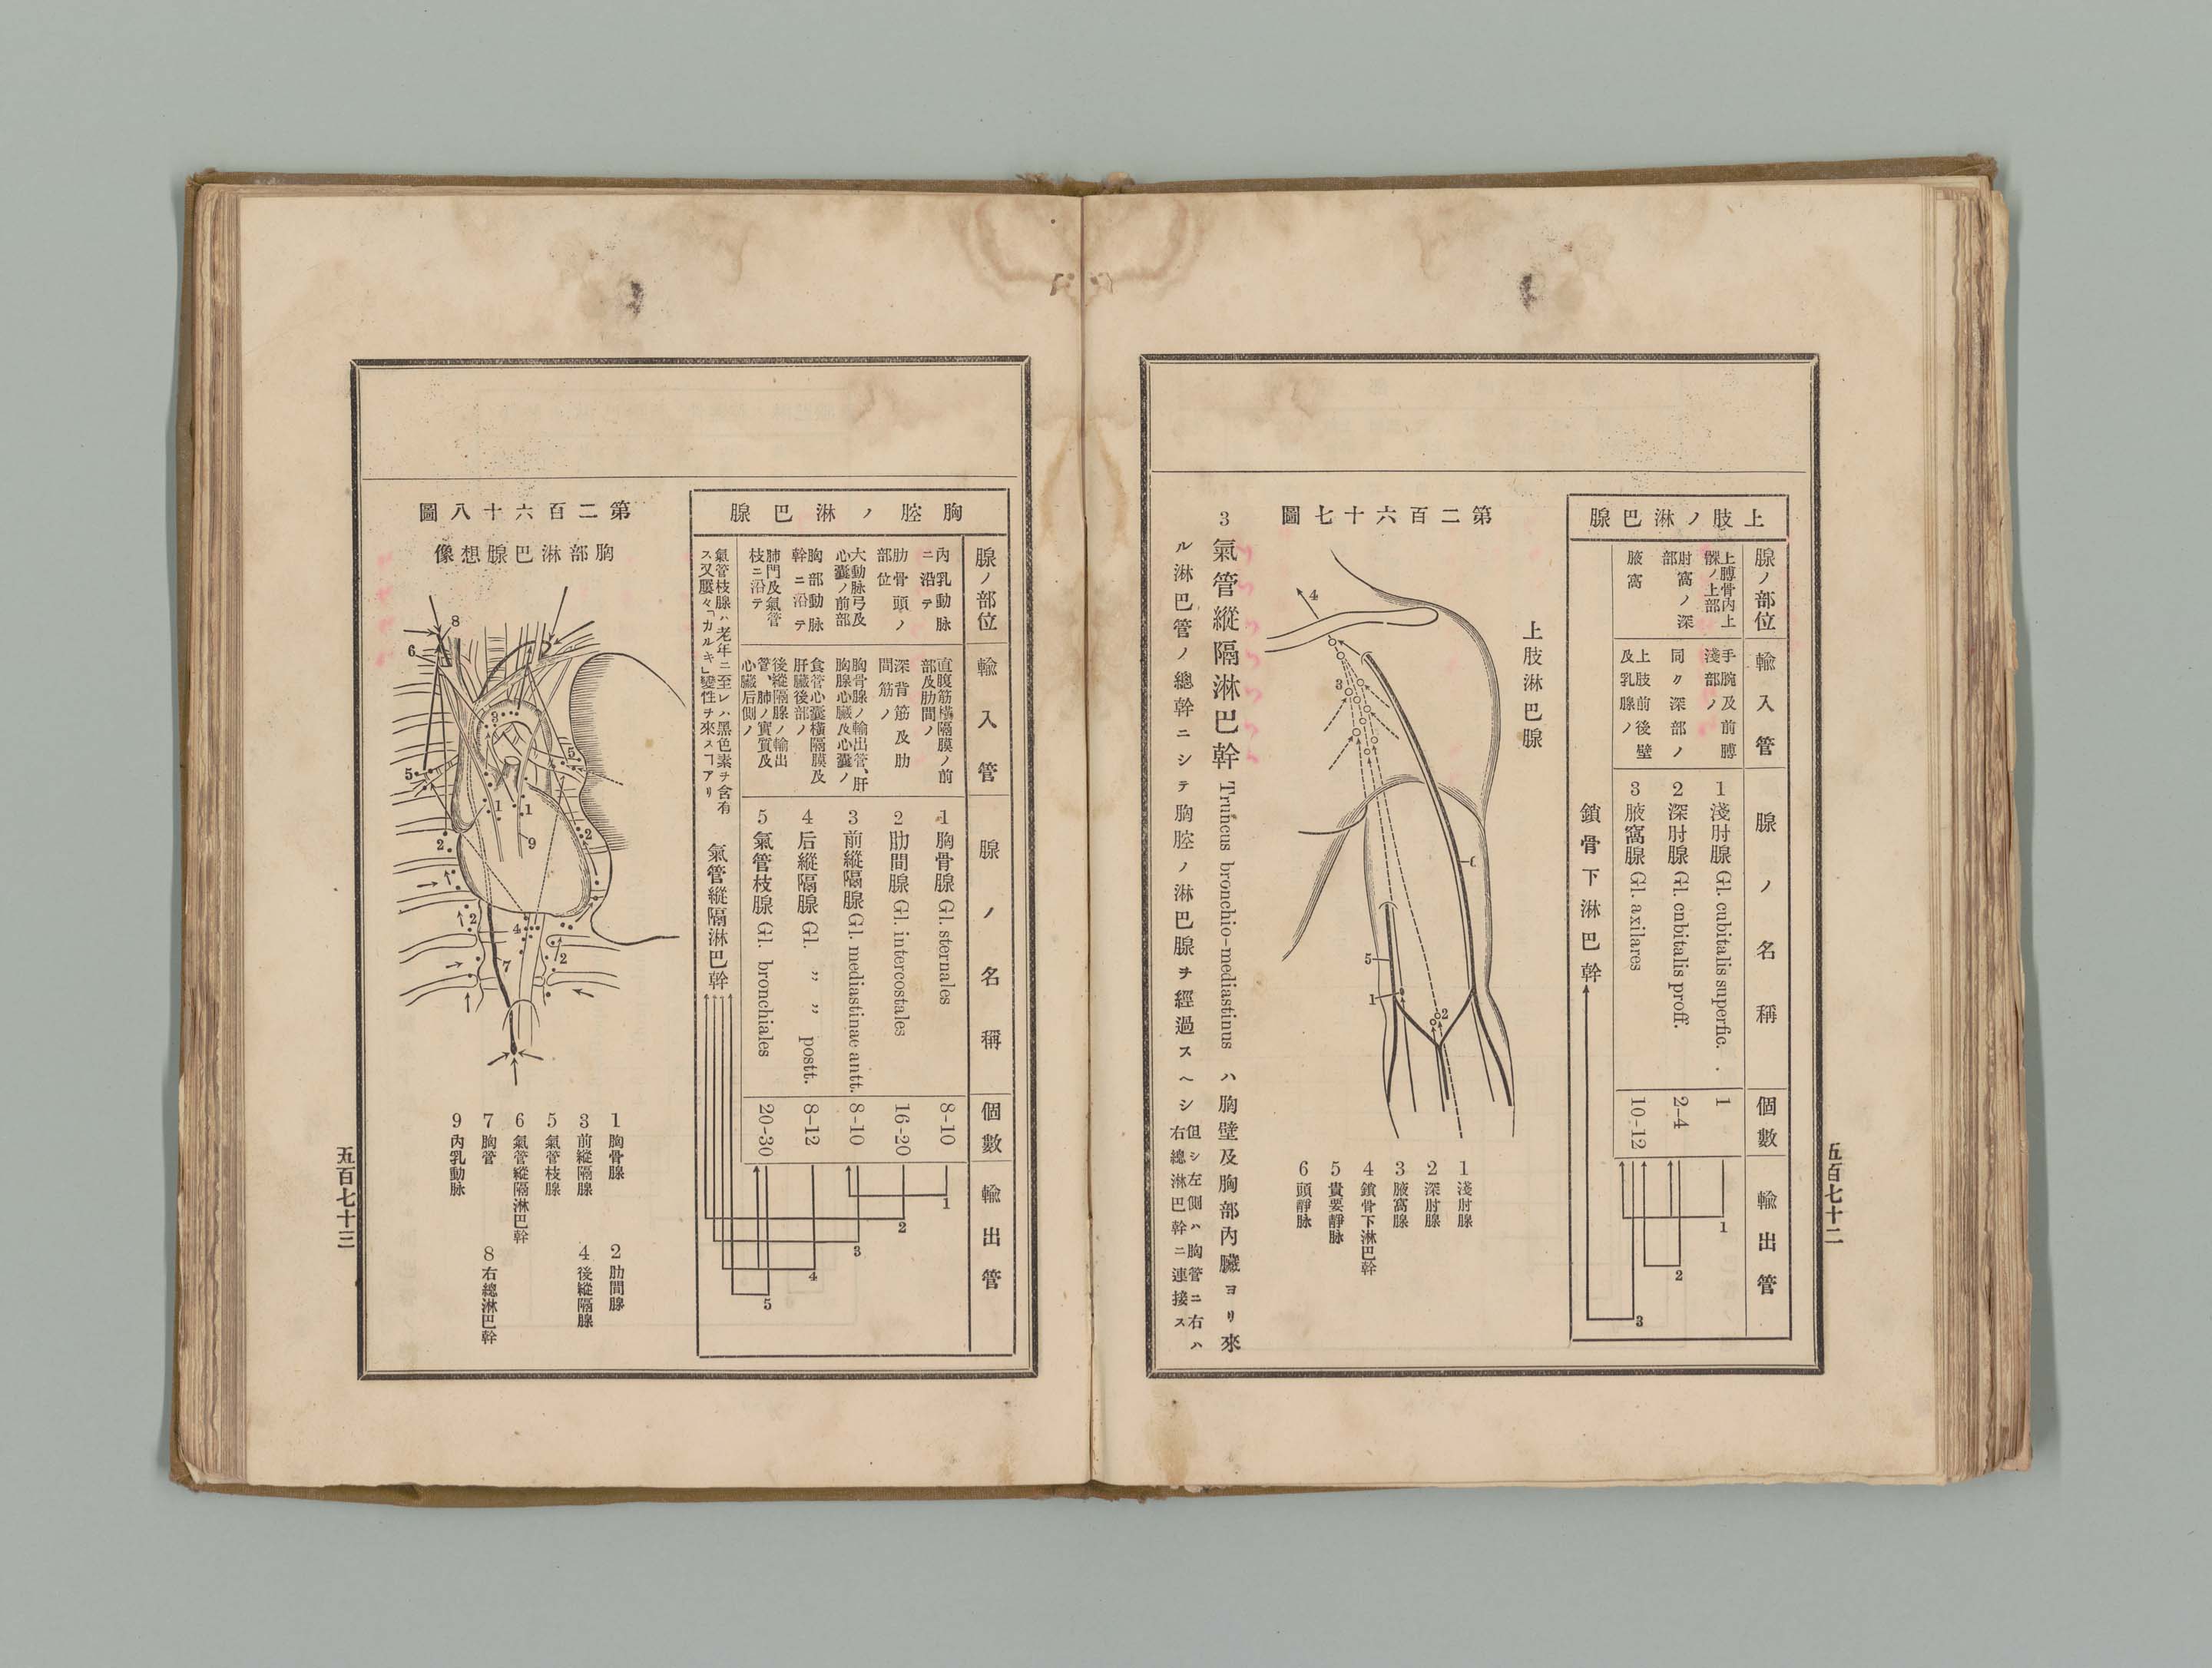 上肢ノ淋巴腺
腺ノ部位
輸入管
腺ノ名稱
個數
輸出管
上膊骨內上
髁ノ上部
手腕及前膊
淺部ノ
1 淺肘腺 Gl. cubitalis superfic.
1
1
肘窩ノ深
部
同ク深部ノ
2 深肘腺 Gl. cnbitalis proff.
2-4
2
腋窩
上肢前後壁
及乳腺ノ
3 腋窩腺 Gl. axilares
10-12
3
鎖骨下淋巴幹
上肢淋巴腺
第二百六十七圖
4
3
6
5
1
2
1 淺肘腺
2 深肘腺
3 腋窩腺
4 鎖骨下淋巴幹
5 貴要靜脉
6 頭靜脉
3 氣管縱隔淋巴幹 Truncus bronchio-mediastinus ハ胸壁及胸部內臟ヨリ來
ル淋巴管ノ總幹ニシテ胸腔ノ淋巴腺ヲ經過スヘシ
但シ左側ハ胸管ニ右ハ
右總淋巴幹ニ連接ス
五百七十二
胸腔ノ淋巴腺
腺ノ部位
輸入管
腺ノ名稱
個數
輸出管
內乳動脉
ニ沿テ
直腹筋橫隔膜ノ前
部及肋間ノ
1 胸骨腺 Gl. sternales
8-10
1
肋骨頭ノ
部位
深背筋及肋
間筋ノ
2 肋間腺 Gl. intercostales
16-20
2
大動脉弓及
心囊ノ前部
胸骨腺ノ輸出管、肝
胸腺心臟及心囊ノ
3 前縱隔腺 Gl. mediastinae antt.
8-10
3
胸部動脉
幹ニ沿テ
食管心囊橫隔膜及
肝臟後部ノ
4 后縱隔腺 Gl. 〃 〃 postt.
8-12
4
肺門及氣管
枝ニ沿テ
後縱隔腺ノ輸出
管、肺ノ實質及
心臟后側ノ
5 氣管枝腺 Gl. bronchiales
20-30
5
氣管枝腺ハ老年ニ至レハ黑色素チ含有
ス又屢々「カルキ」變性チ來スヿアリ
氣管縱隔淋巴幹
第二百六十八圖
胸部淋巴腺想像
8
6
3
5
5
1
1
2
2
9
2
4
2
7
1 胸骨腺
2 肋間腺
3 前縱隔腺
4 後縱隔腺
5 氣管枝腺
6 氣管縱隔淋巴幹
7 胸管
8 右總淋巴幹
9 內乳動脉
五百七十三